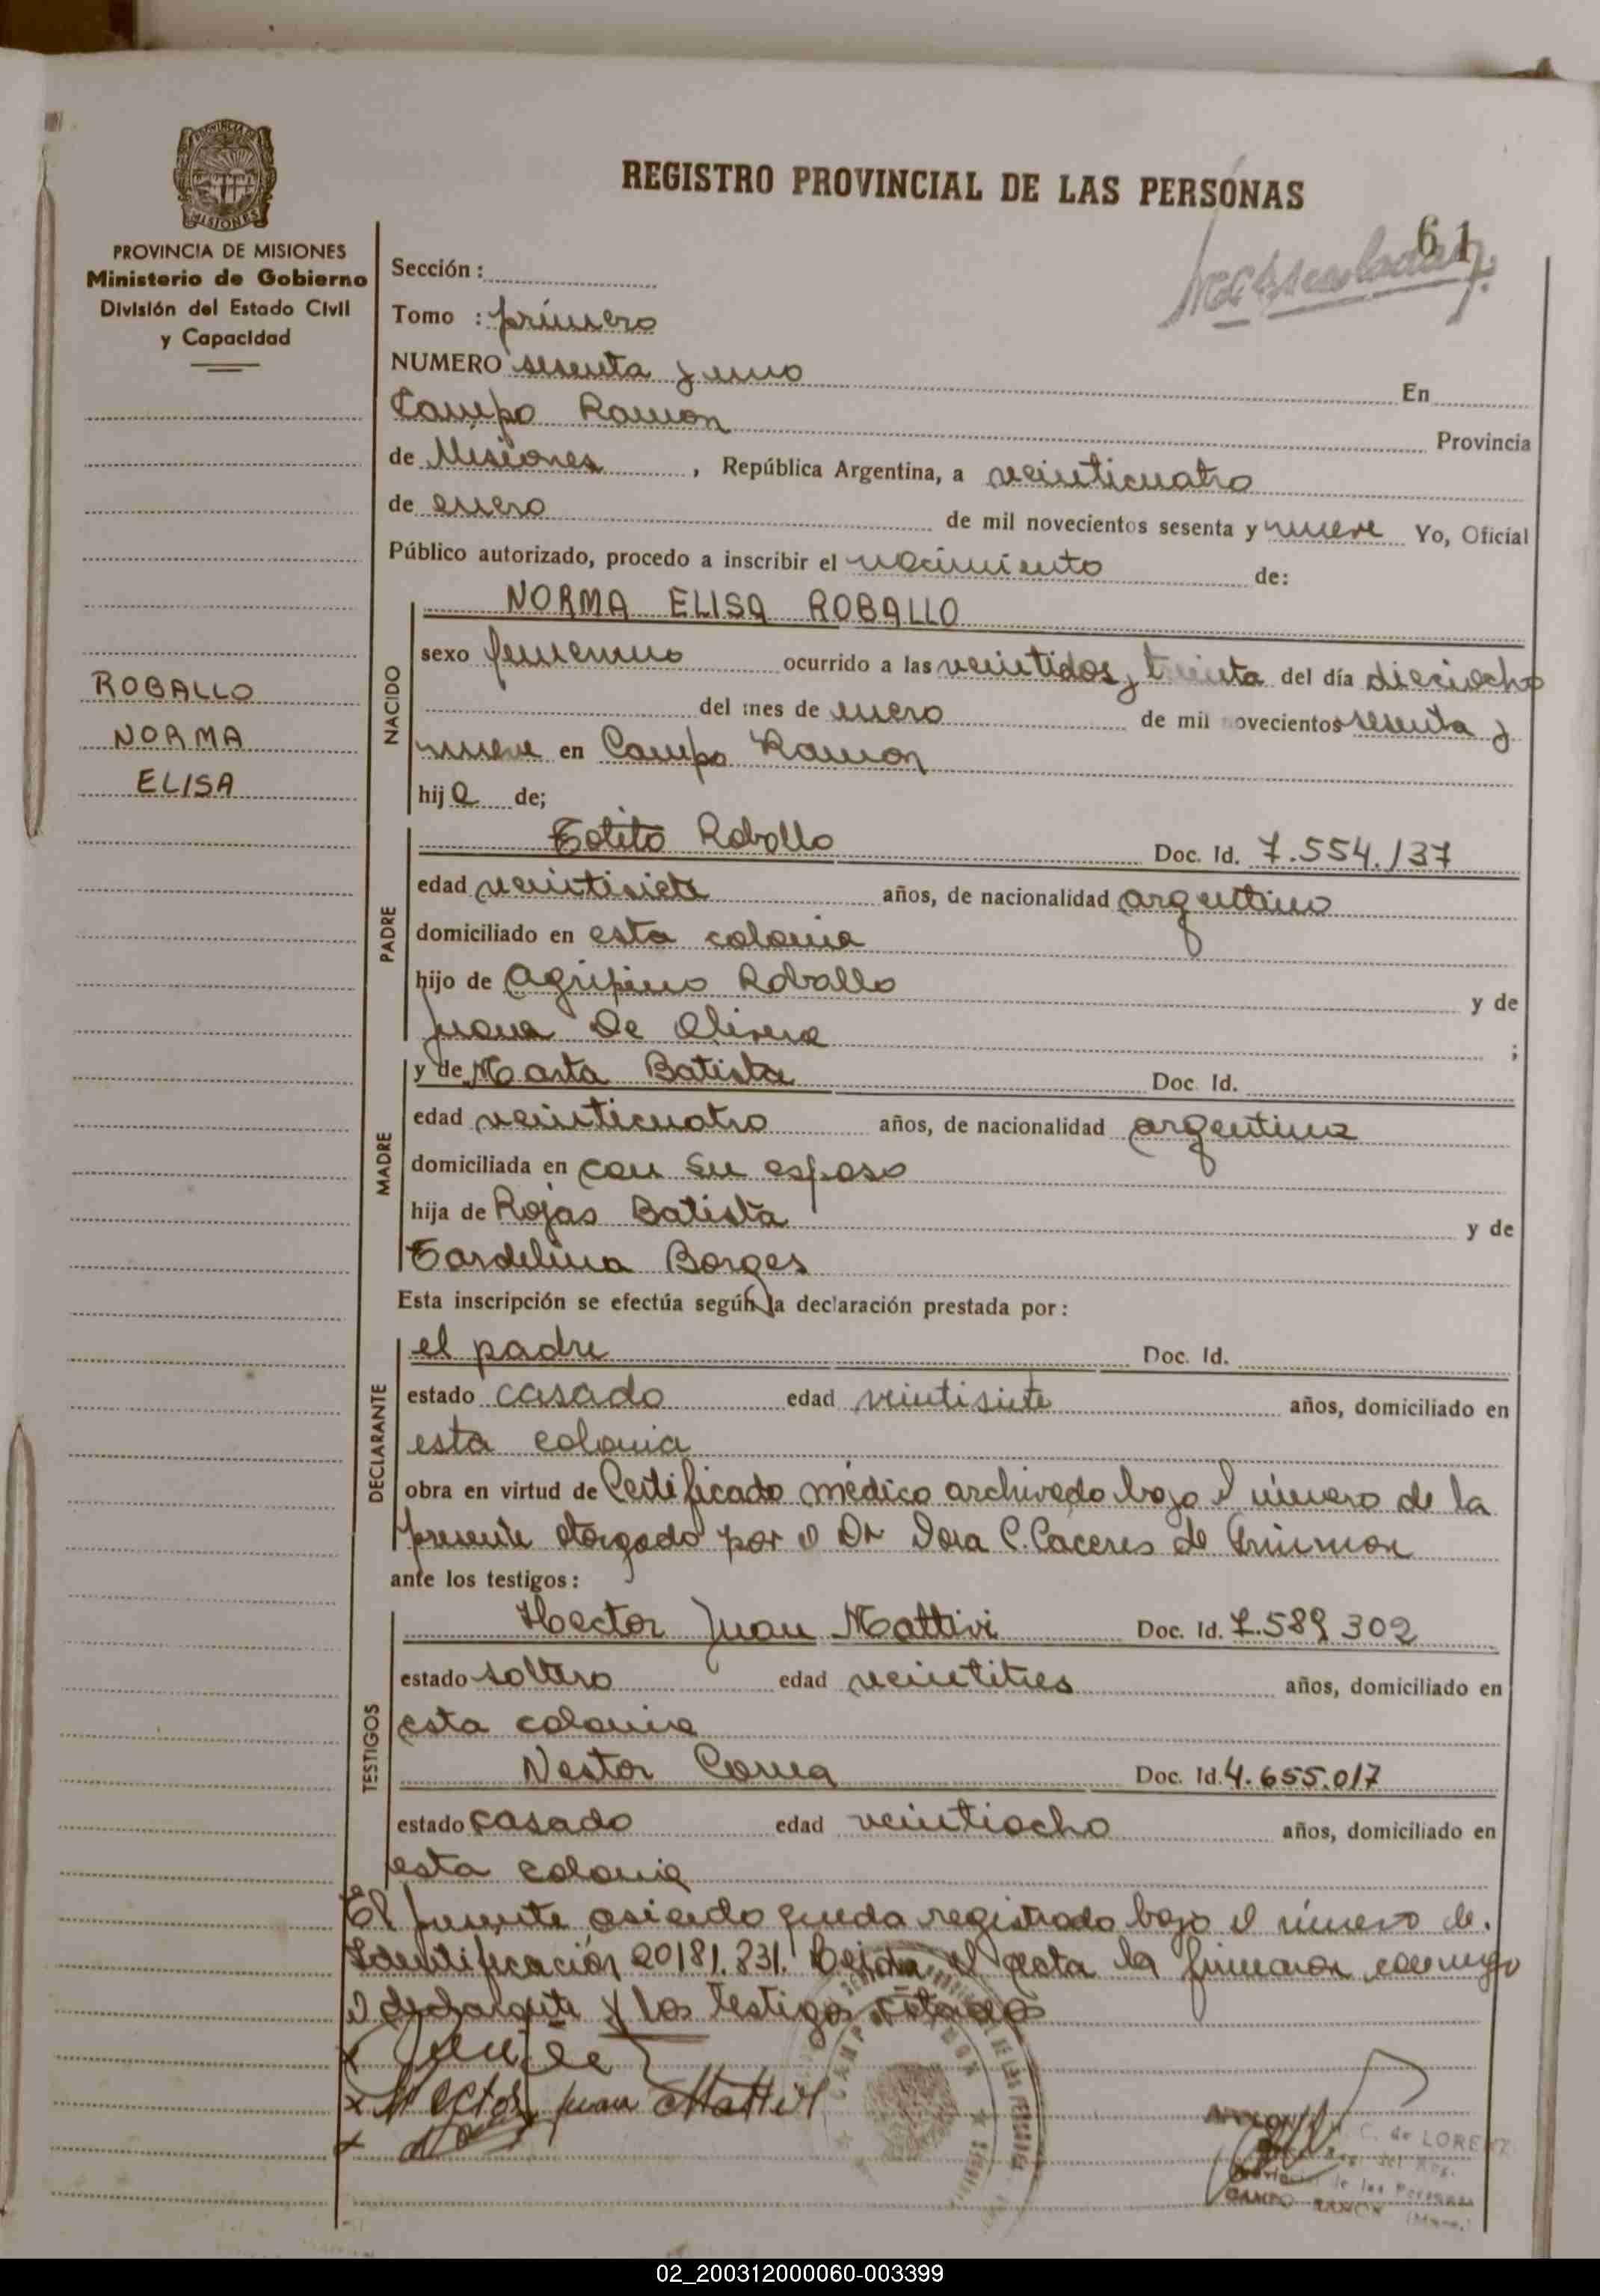 REGISTRO PROVINCIAL DE LAS PERSONAS
61
PROVINCIA DE MISIONES
Ministerio de Gobierno
División del Estado Civil
y Capacidad
ROBALLO
NORMA
ELISA
Sección :
Tomo : primero
NUMERO sesenta y uno En
Campo Ramon Provincia
de Misiones, República Argentina, a veinticuatro
de enero de mil novecientos sesenta y nueve Yo, Oficial
Público autorizado, procedo a inscribir el nacimiento de:
NORMA ELISA ROBALLO
NACIDO
sexo femenino ocurrido a las veintidos y treinta del día dieciocho
del mes de enero de mil novecientos sesenta y
nueve en Campo Ramon
hija de;
PADRE
Totito Roballo Doc. Id. 7.554.137
edad veintisiete años, de nacionalidad argentino
domiciliado en esta colonia
hijo de Agripino Roballo y de
Juana De Olivera ;
MADRE
y de Marta Batista Doc. Id.
edad veinticuatro años, de nacionalidad argentina
domiciliada en con su esposo
hija de Rojas Batista y de
Tardelina Borges
Esta inscripción se efectúa según la declaración prestada por :
DECLARANTE
el padre Doc. Id.
estado casado edad veintisiete años, domiciliado en
esta colonia
obra en virtud de Certificado médico archivado bajo el número de la
presente otorgado por el Dr Dora C. Cáceres de
ante los testigos :
TESTIGOS
Hector Juan Mattivi Doc. Id. 7.589 302
estado soltero edad veintitres años, domiciliado en
esta colonia
Nestor Correa Doc. Id. 4.655.017
estado casado edad veintiocho años, domiciliado en
esta colonia
El presente asiento queda registrado bajo el número de
Identificación 20181.831. Leida el acta la firmaron conmigo
el declarante y los testigos citados
Hector Juan Mattivi
CAMPO RAMON
C. de LORENZ
de las Personas
CAMPO RAMON
02_200312000060-003399